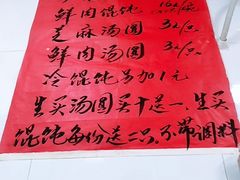 鲜肉馄饨
芝麻汤圆 3元/
鲜肉汤圆 3元/
冷馄饨另加1元
生买汤圆买十送一.生买
馄饨每份送二只.不带调料